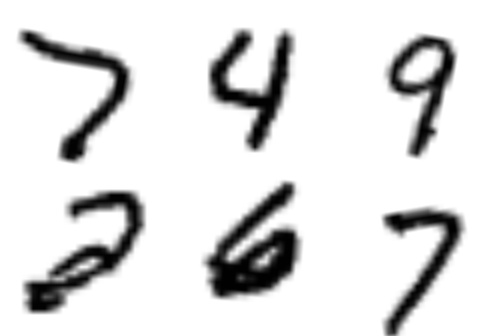 7 4 9
2 6 7